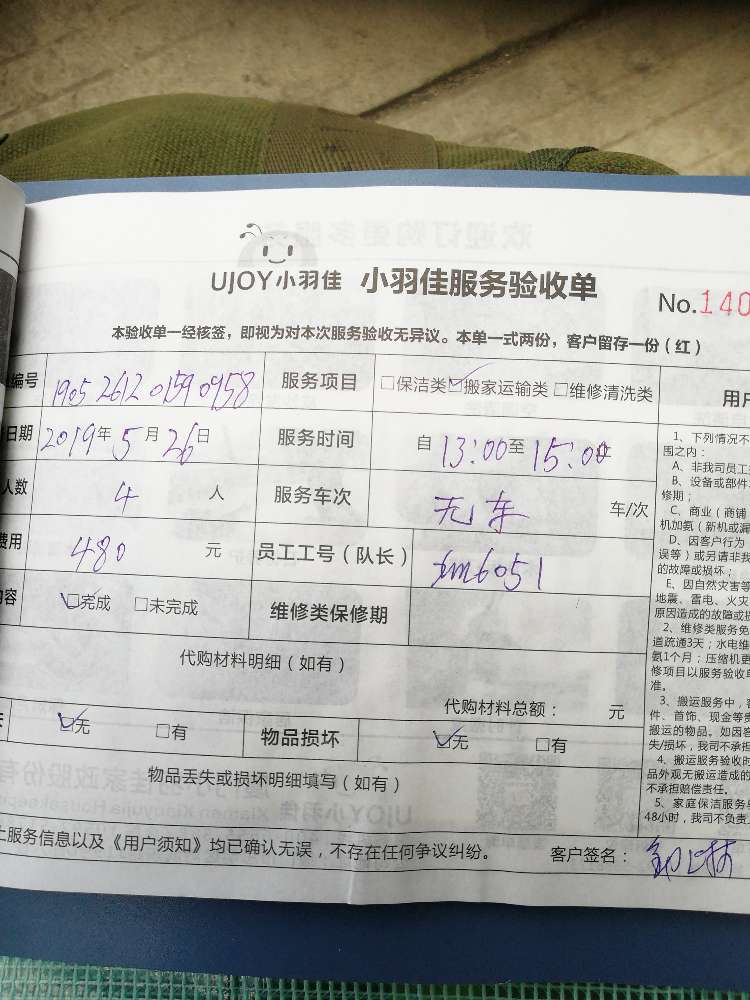 UJOY小羽佳 小羽佳服务验收单
No.140
本验收单一经核签，即视为对本次服务验收无异议。本单一式两份，客户留存一份（红）
编号 1905 2612 0159 0958 服务项目 □保洁类 ☑搬家运输类 □维修清洗类
日期 2019年 5月 26日 服务时间 自 13:00至 15:00
人数 4 人 服务车次 无车 车/次
费用 480 元 员工工号（队长） xm6051
内容 ☑完成 □未完成 维修类保修期
代购材料明细（如有）
代购材料总额： 元
☑无 □有 物品损坏 ☑无 □有
物品丢失或损坏明细填写（如有）
上服务信息以及《用户须知》均已确认无误，不存在任何争议纠纷。 客户签名：
用户
1、下列情况不
围之内：
A、非我司员工
B、设备或部件
修期；
C、商业（商铺
机加氨（新机或漏
D、因客户行为
误等）或另请非我
的故障或损坏；
E、因自然灾害等
地震、雷电、火灾
原因造成的故障或损
2、维修类服务免
道疏通3天；水电维
氨1个月；压缩机更
修项目以服务验收单
准。
3、搬运服务中，客
件、首饰、现金等贵
搬运的物品。如因客
失/损坏，我司不承担
4、搬运服务验收时
品外观无搬运造成的
不承担赔偿责任。
5、家庭保洁服务
48小时，我司不负责